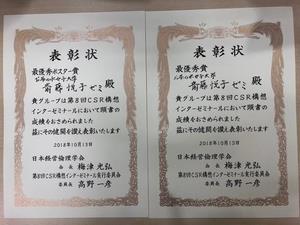 表彰状
最優秀ポスター賞
斎藤悦子ゼミ 殿
貴グループは第8回CSR構想
インターゼミナールにおいて頭書の
成績をおさめられました
茲にその健闘を讃え表彰いたします
2018年10月13日
日本経営倫理学会
会長 梅津光弘
第8回CSR構想インターゼミナール実行委員会
委員長 高野一彦
表彰状
最優秀賞
斎藤悦子ゼミ 殿
貴グループは第8回CSR構想
インターゼミナールにおいて頭書の
成績をおさめられました
茲にその健闘を讃え表彰いたします
2018年10月13日
日本経営倫理学会
会長 梅津光弘
第8回CSR構想インターゼミナール実行委員会
委員長 高野一彦